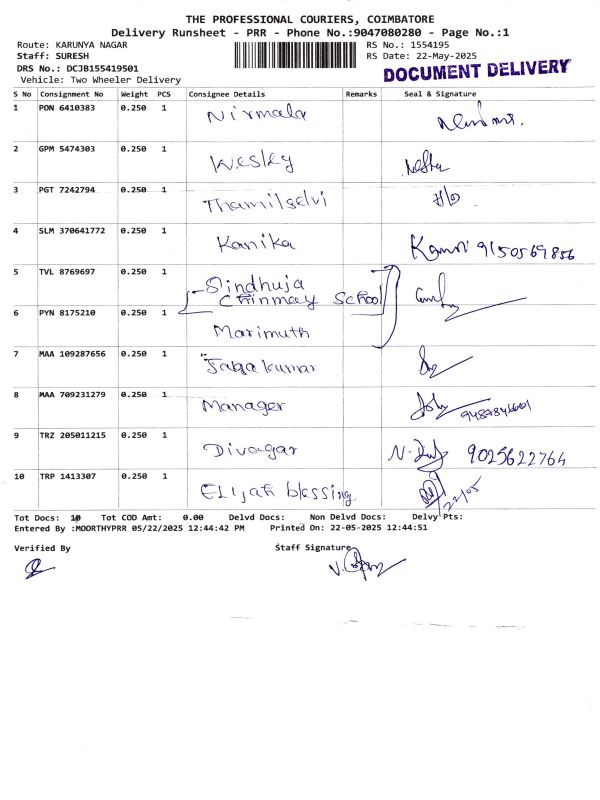 THE PROFESSIONAL COURIERS, COIMBATORE
Delivery Runsheet - PRR - Phone No.:9047080280 - Page No.:1
Route: KARUNYA NAGAR
RS No.: 1554195
Staff: SURESH
RS Date: 22-May-2025
DRS No.: DCJB155419501
DOCUMENT DELIVERY
Vehicle: Two Wheeler Delivery
S No Consignment No Weight PCS Consignee Details Remarks Seal & Signature
1 PON 6410383 0.250 1 Nirmala
2 GPM 5474303 0.250 1 Wesley
3 PGT 7242794 0.250 1 Thamilselvi
4 SLM 370641772 0.250 1 Kanika 9150569856
5 TVL 8769697 0.250 1 Sindhuja
Chinmay School
6 PYN 8175210 0.250 1 Marimuth
7 MAA 109287656 0.250 1 Jagakumar
8 MAA 709231279 0.250 1 Manager
9 TRZ 205011215 0.250 1 Divagar 9025622764
10 TRP 1413307 0.250 1 Elijah blessing 22/05
Tot Docs: 10 Tot COD Amt: 0.00 Delvd Docs: Non Delvd Docs: Delvy Pts:
Entered By :MOORTHYPRR 05/22/2025 12:44:42 PM Printed On: 22-05-2025 12:44:51
Verified By Staff Signature